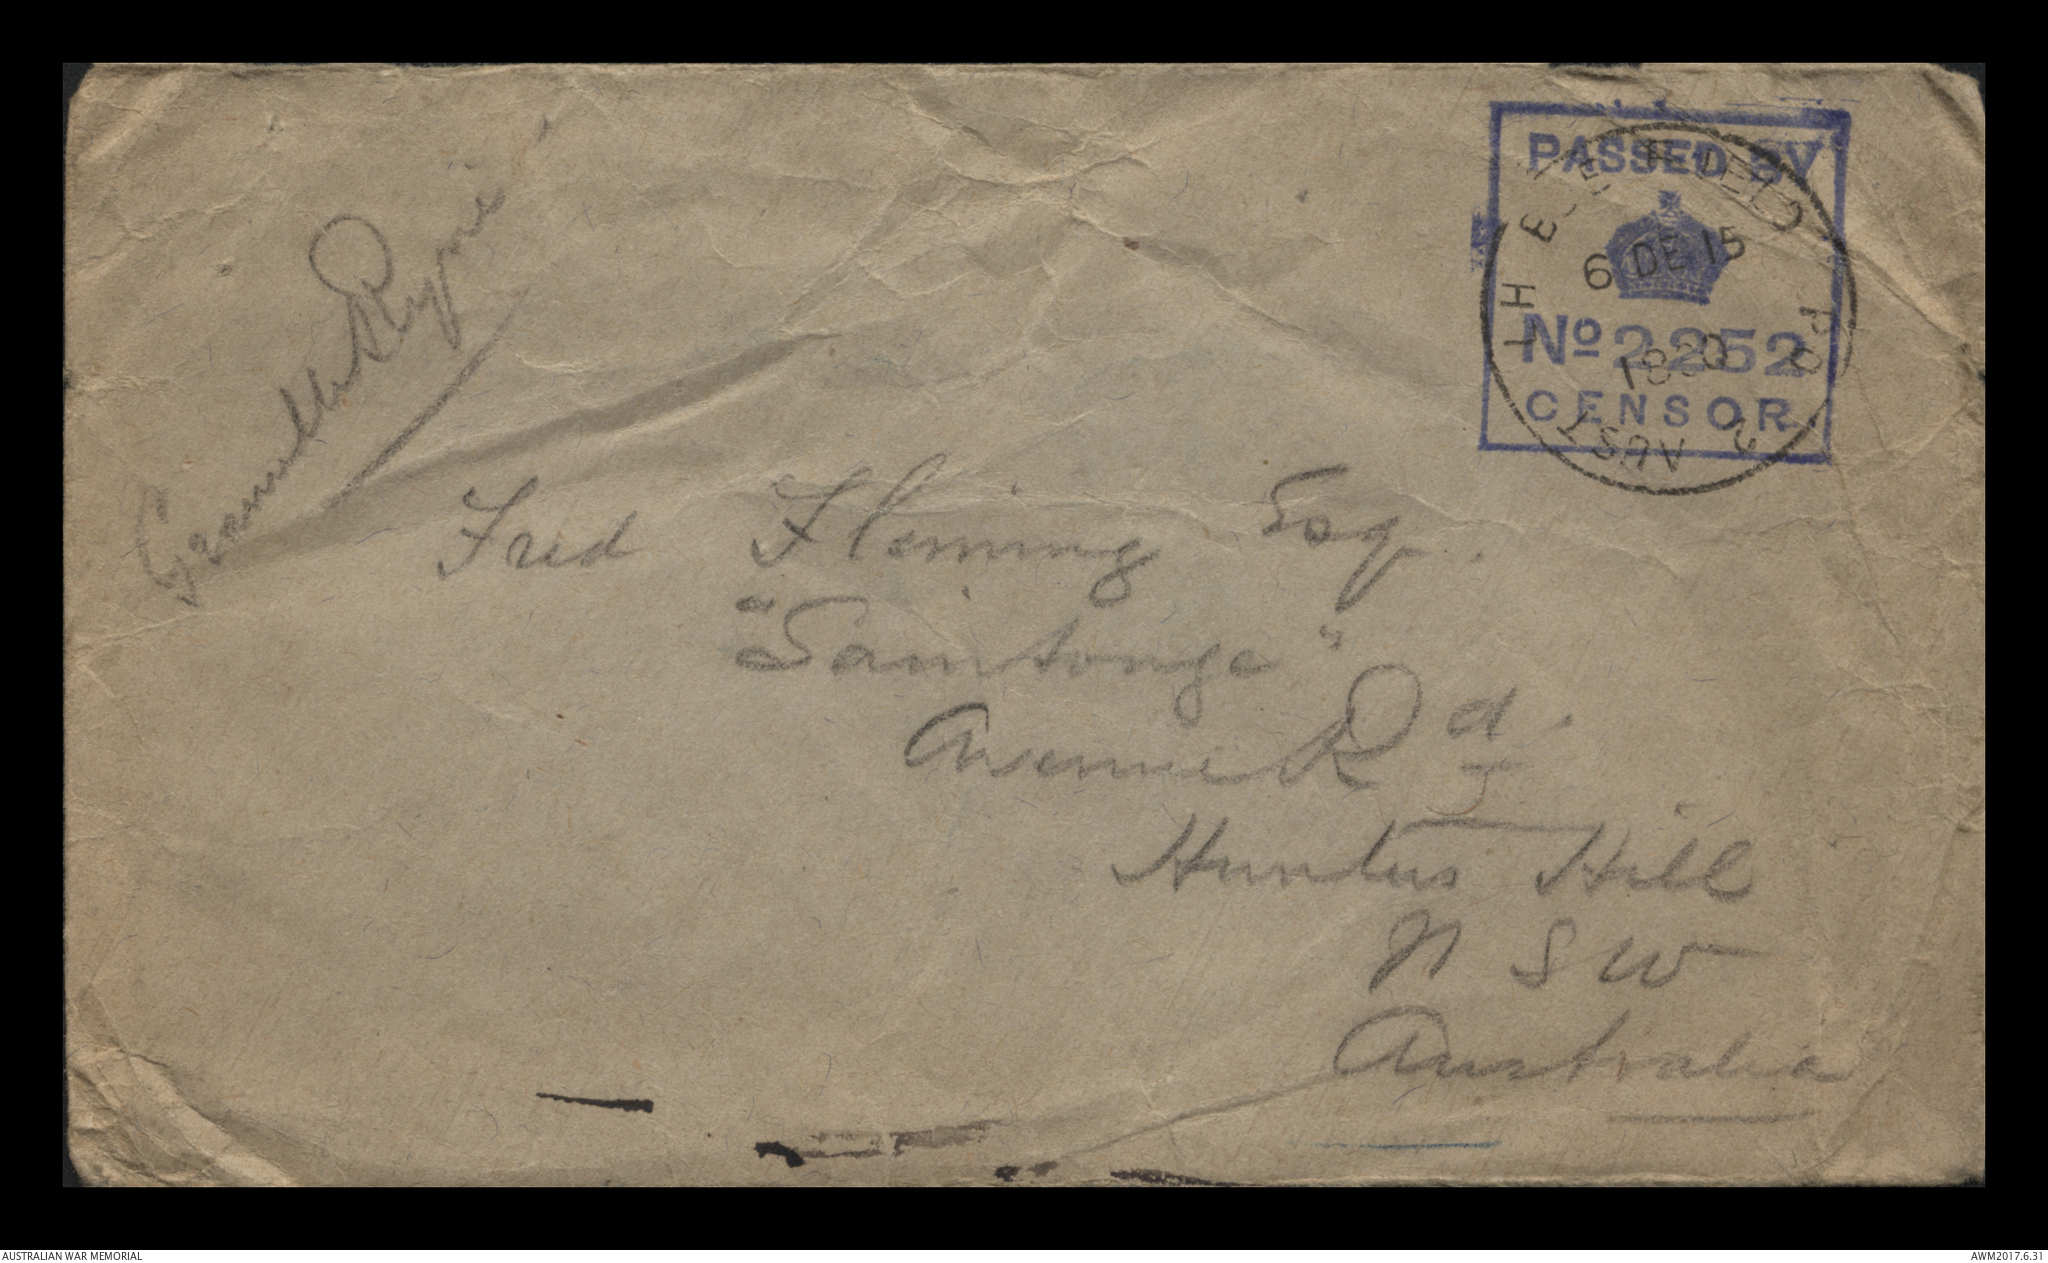 Granville Ryrie
PASSED BY
No 2252
CENSOR
6 DE 15
1800
AUST
Fred Fleming Esq.
"Saintonge"
Avenue Rd.
Hunters Hill
N S W
Australia
AUSTRALIAN WAR MEMORIAL
AWM2017.6.31